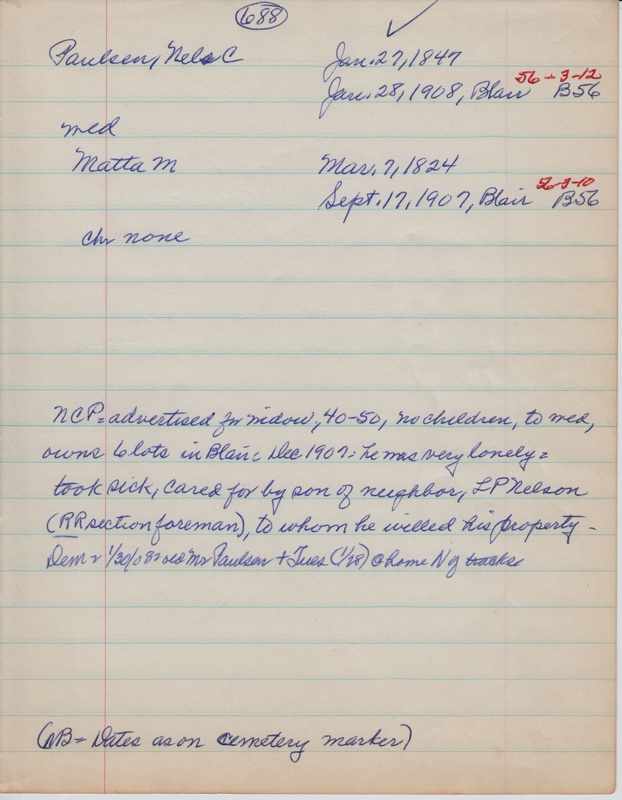 688
Paulsen, Nels C Jan. 27, 1847
56-3-12
Jan. 28, 1908, Blair B56
med
Matta M Mar. 7, 1824
56-3-10
Sept. 17, 1907, Blair B56
chr none
NCP = advertised for widow, 40-50, no children, to med,
owns 6 lots in Blair = Dec 1907 = he was very lonely =
took sick, cared for by son of neighbor, LP Nelson
(RR section foreman), to whom he willed his property -
Dem 1/30/08 = old Mr Paulsen + Tues (1/28) @ home N of tracks
(NB = Dates as on cemetery marker)